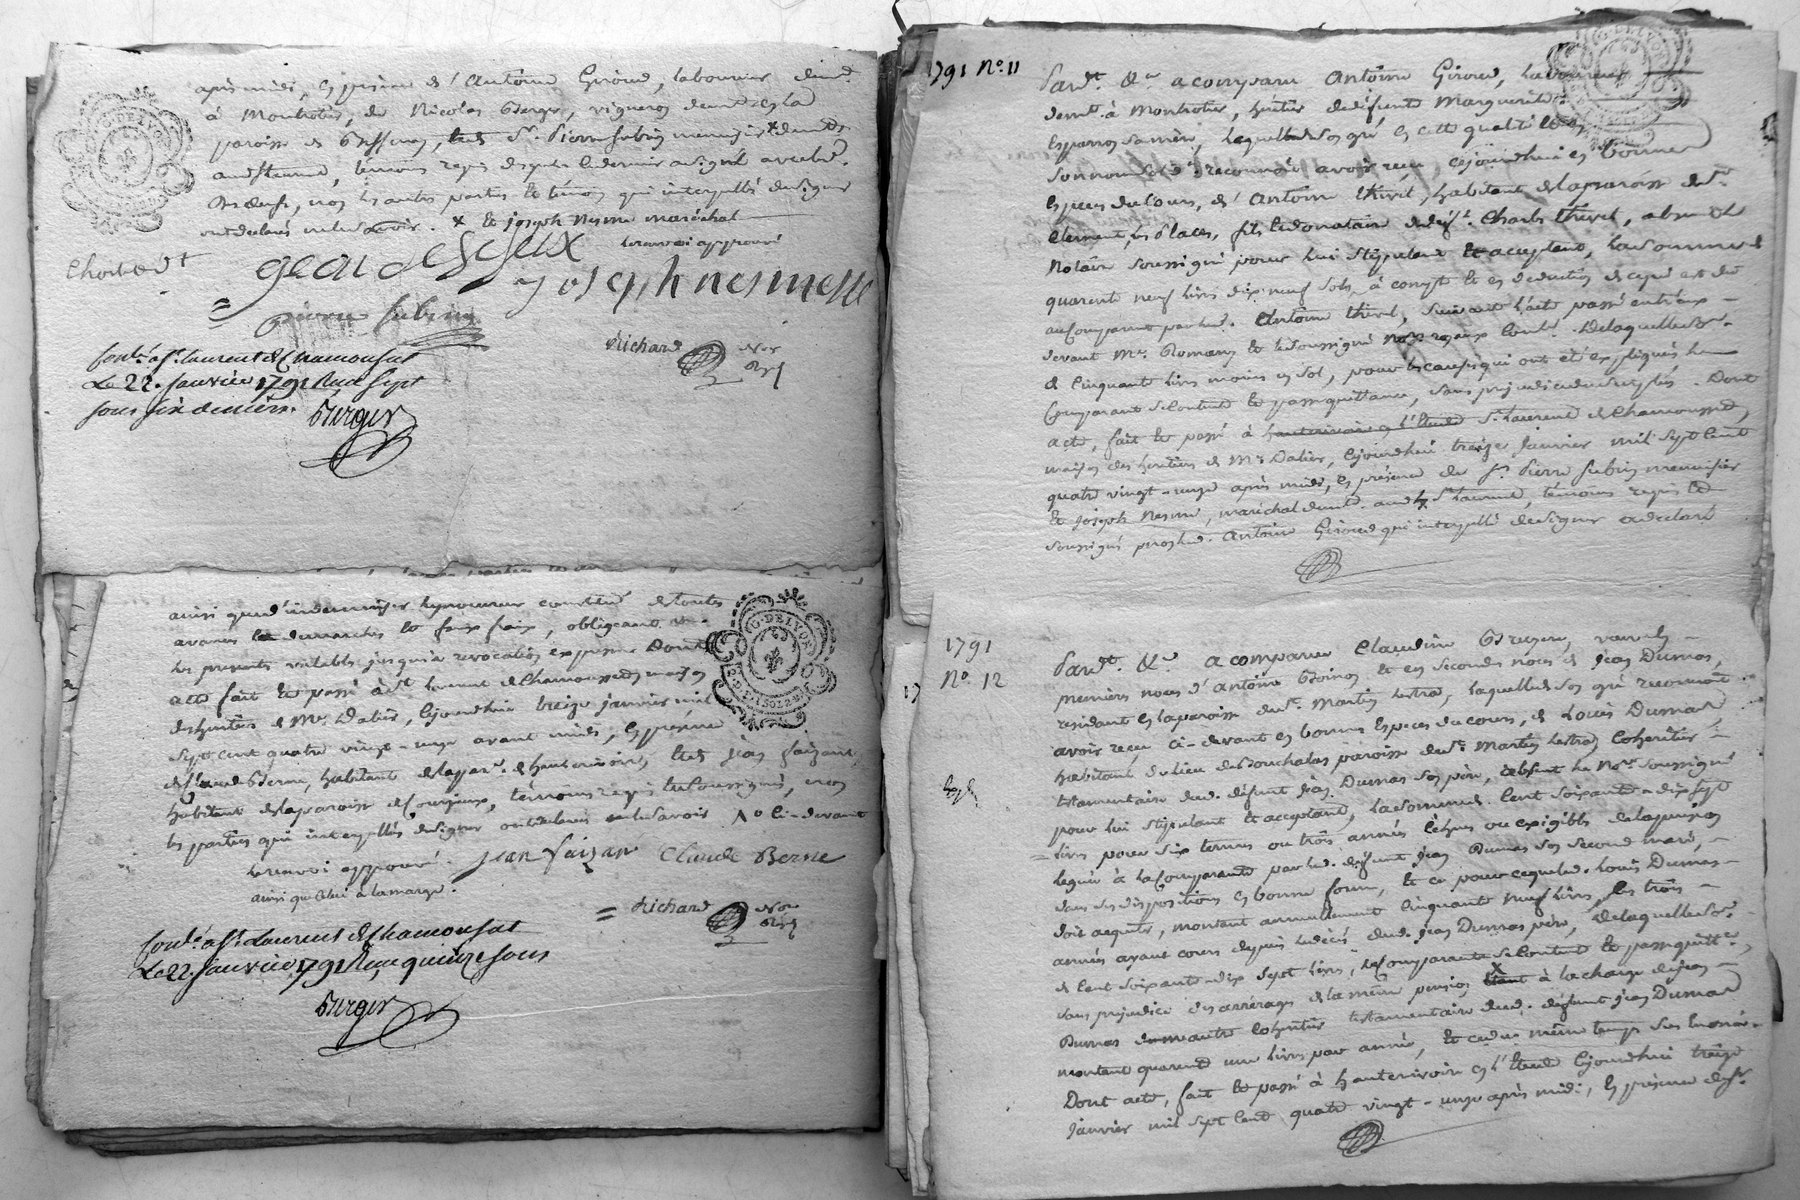 après midi, en présence de s.r Antoine Giroud, laboureur dem.t
à Montrotier, de Nicolas Berger, vigneron demt en la
paroisse de Bessenay, s.r Pierre Subrin menuisier x dem.t
aud st Laurent, témoins requis desquels le dernier a signé avec led.
non les autres parties le témoin qui interpellés de signer
ont déclarés ne le savoir. x et joseph nesme maréchal
le renvoi approuvé
joseph nesmesse
pierre subrin
Richard No.re
Cont.é a st. laurent de chamousset
Le 22. Janvier 1791 Reçu sept
sous six deniers.
Berger
G. DE LYON
ainsi que d'indemniser le procureur constitué de toutes
avances démarches et faux frais, obligeant &a.
les présentes valables jusqu'à révocation expresse Dont
acte fait et passé à st Laurent de Chamousset maison
des héritiers de Me Dalier, cejourdhui treize janvier mil
sept cent quatre vingt-onze avant midi, en présence
de Claude Berne, habitant de la par.e d'hauterivoire, et de jean faizant,
habitant de la paroisse de courzieux, témoins requis et soussignés, non
les parties qui interpellées de signer ont déclaré ne le savoir ci-devant
le renvoi approuvé. jean faizan Claude Berne
ainsi que celui à la marge.
Richard No.re
Cont.é a st. Laurent de chamousset
Le 22. Janvier 1791 Reçu quinze sous
Berger
G. DE LYON
1791 No. 11
Pard.t &a a comparu Antoine Giroud, laboureur
demt. à Montrotier, héritier de défunte Marguerite
Esparron sa mère, lequel de son gré en cette qualité et en
son nom reconnoit avoir reçu cejourdhui en bonnes
espèces du cours, de s.r Antoine thivel, habitant de la paroisse de st.
Clement, les places, fils et donataire de déft. Charles thivel, absent le
Notaire soussigné pour lui stipulant et acceptant, la somme de
quarante neuf livres dix neuf sols, à compte et en déduction de ce qui est dû
au comparant par led. Antoine thivel, suivant l'acte passé entr'eux
devant Me. Romany et le soussigné Nores royaux Delaquelle so.e
de Cinquante livres moins un sol, pour les causes qui ont été expliquées le
comparant se contente et passe quittance, sans préjudice du surplus. Dont
acte, fait et passé à hauterivoire en l'étude st. Laurent de Chamousset,
maison des héritiers de Me Dalier, cejourdhui treize Janvier mil sept cent
quatre vingt-onze après midi, en présence de s.r Pierre Subrin menuisier
et joseph Nesme, maréchal demt. aud. st. Laurent, témoins requis et
soussignés non led. Antoine Giroud qui interpellé de signer a déclaré
1791
No. 12
Pard.t &a a comparue Claudine Bruyere, veuve en
premières noces d'Antoine Goinon et en secondes noces de jean Dumas,
résidant en la paroisse de st. Martin lestra, laquelle de son gré reconnoit
avoir reçu ci-devant en bonnes espèces du cours, de Louis Dumas,
habitant du lieu des Bouchalas paroisse de st. Martin lestra, cohéritier
testamentaire dud. défunt jean Dumas son père, absent le Nore soussigné
pour lui stipulant et acceptant, la somme de Cent soixante-dix sept
livres pour six termes ou trois années échues ou exigibles de la pension
léguée à la comparante par led. défunt jean Dumas son second mari,
dans ses dispositions en bonne forme, et ce pour ce que led. Louis Dumas
doit acquitter, montant annuellement cinquante neuf livres, les trois
années ayant cours depuis le décès dud. jean Dumas père, de laquelle so.e
de Cent soixante-dix sept livres, la comparante se contente et passe quittce,
sans préjudice des arrérages de la même pension étant à la charge de jean
Dumas autre cohéritier testamentaire dud. défunt jean Dumas
montant quarante une livres par année, et ce du même temps
Dont acte, fait et passé à hauterivoire en l'étude cejourdhui treize
Janvier mil sept cent quatre vingt-onze après midi, en présence de s.r